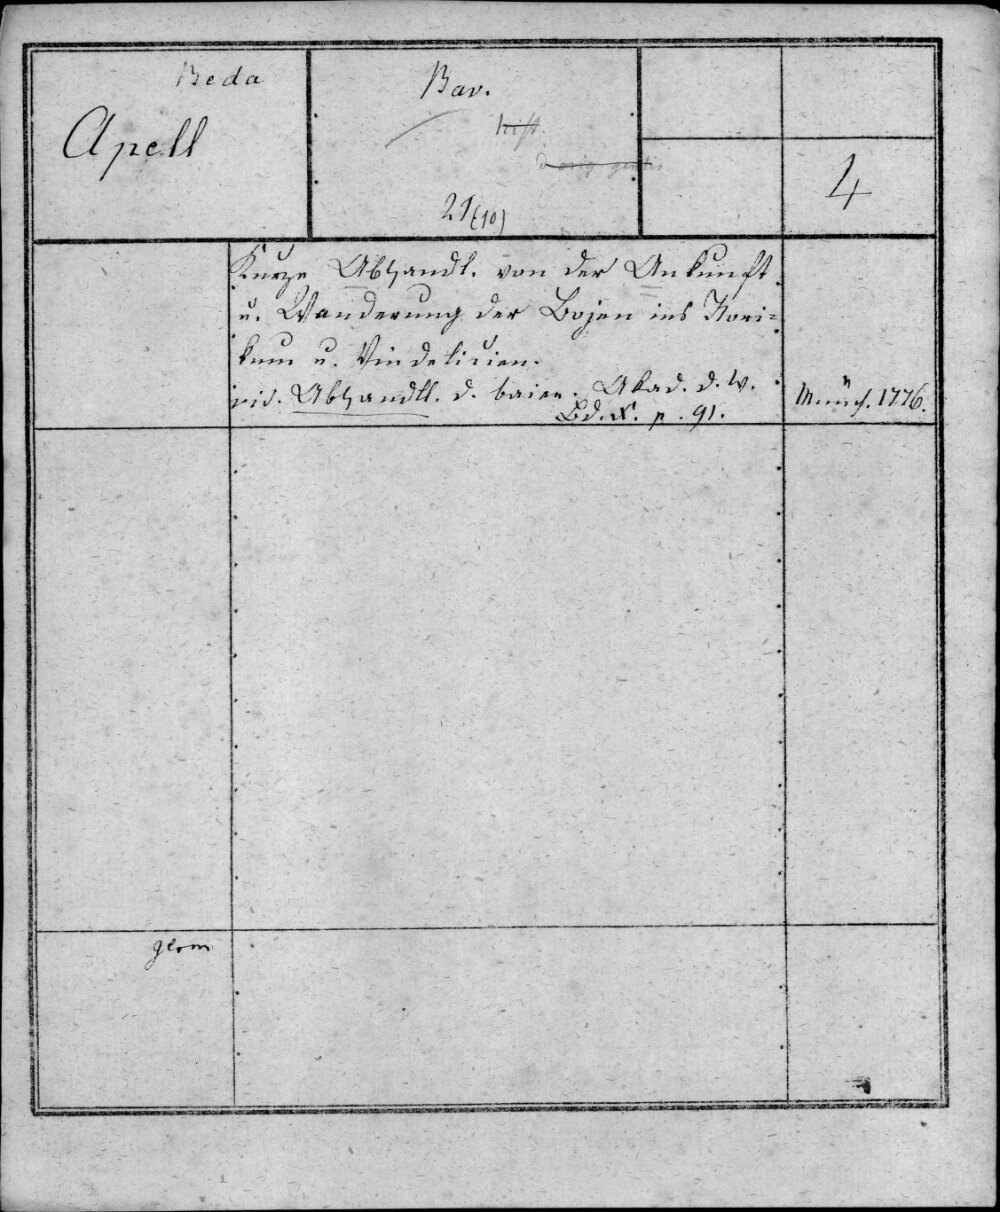 Beda
Apell
Bav.
hist.
d orig gentis
21(10)
4
Kurze Abhandl. von der Ankunft
u. Wanderung der Bojen ins Nori=
kum u. Vindelicien.
vid. Abhandl. d. baier. Akad. d. W.
Bd. X. p. 91.
Münch. 1776.
germ